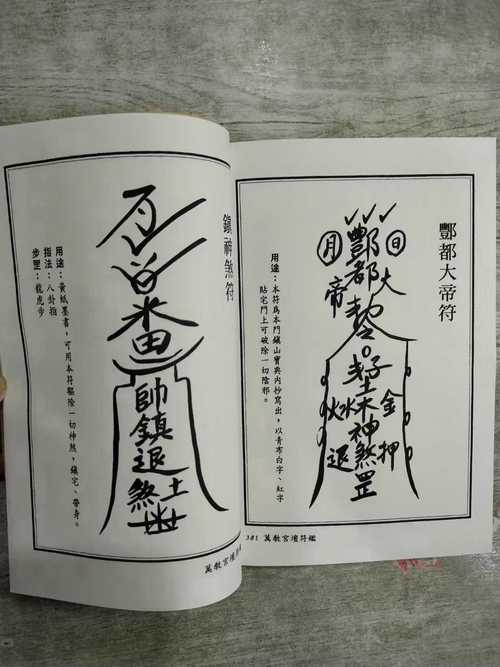 酆都大帝符
日
月
酆都大
帝
金
木
水
火
土
神煞罡
押
退
用途：本符為本門鎮山寶典內抄寫出，以青布白字、紅字
貼宅門上可破除一切陰邪。
381 萬教宮壇符鑑
鎮神煞符
帥鎮退煞
土
用途：黃紙墨書，可用本符驅除一切神煞，鎮宅、帶身。
指法：八卦指
步罡：龍虎步
萬教宮壇符